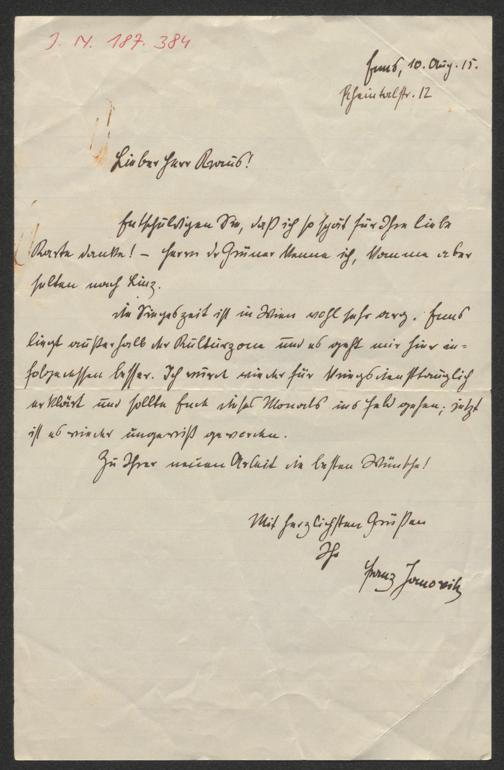 I. N. 187.384
Enns, 10. Aug. 15.
Rheintalstr. 12
Lieber Herr Kraus!
Entschuldigen Sie, daß ich so spät für Ihre liebe
Karte danke! – Herrn Dr Gruner kenne ich, komme aber
selten nach Linz.
Die Siegeszeit ist in Wien wohl sehr arg. Enns
liegt außerhalb der Kulturzone und es geht mir hier in-
folgedessen besser. Ich wurde wieder für kriegsdiensttauglich
erklärt und sollte Ende dieses Monats ins Feld gehen; jetzt
ist es wieder ungewiß geworden.
Zu Ihrer neuen Arbeit die besten Wünsche!
Mit herzlichsten Grüßen
Ihr
Franz Janowitz